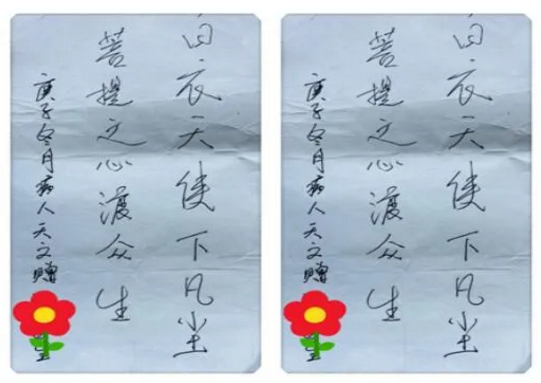 白衣天使下凡尘
菩提之心渡众生
庚子冬月病人天文赠
白衣天使下凡尘
菩提之心渡众生
庚子冬月病人天文赠